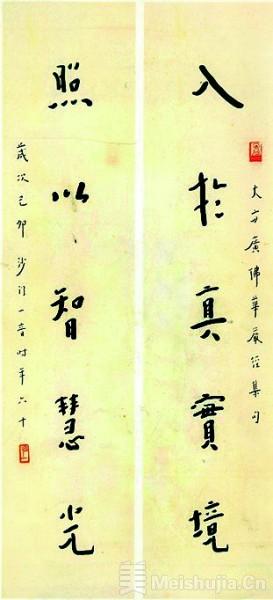 大方廣佛華嚴經集句
入於真實境
照以智慧光
歲次己卯沙門一音時年六十
美 Meishujia.Cn